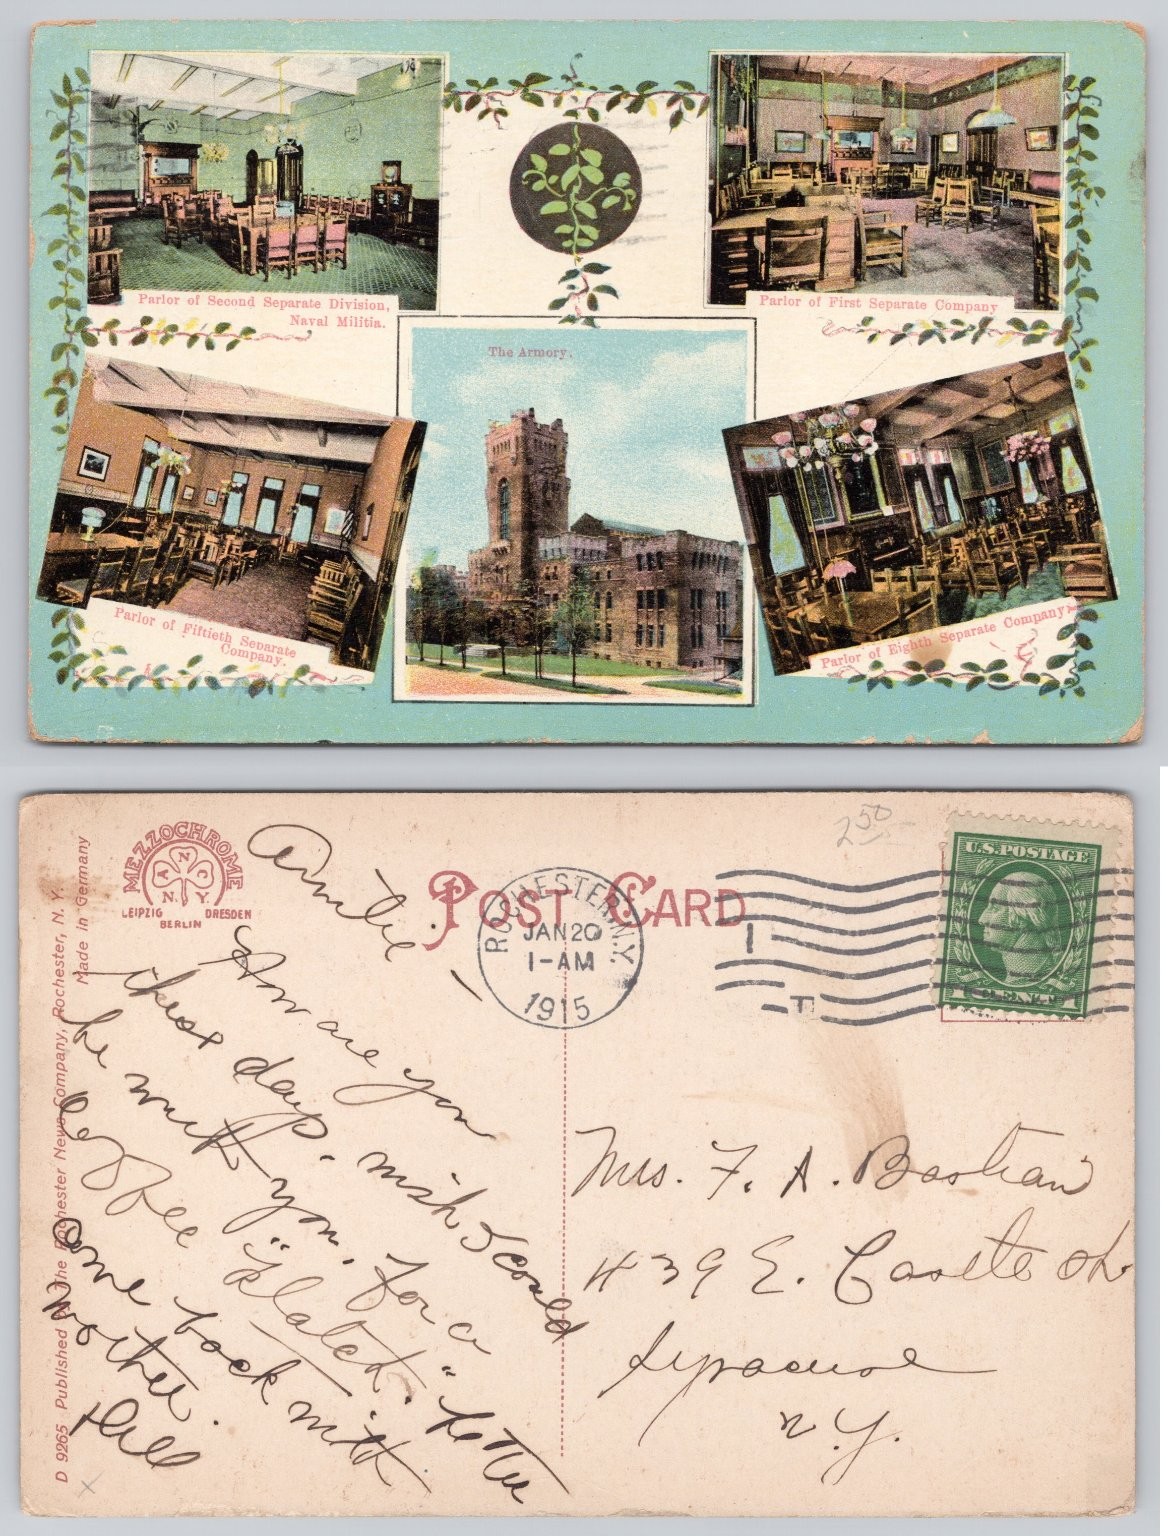 Parlor of Second Separate Division,
Naval Militia.
Parlor of First Separate Company
The Armory.
Parlor of Fiftieth Separate
Company.
Parlor of Eighth Separate Company
250
MEZZOCHROME
A N C
N Y
LEIPZIG DRESDEN
BERLIN
POST CARD
ROCHESTER, N.Y.
JAN 20
1-AM
1915
1
U.S. POSTAGE
D 9265 Published by the Rochester News Company, Rochester, N. Y.
Made in Germany
Auntie -
How are you
these days. wish I could
be with you, for a
Coffee "Klatch". Better
come back with
mother.
Mrs. F. A. Bastian
439 E. Castle St.
Syracuse
N.Y.